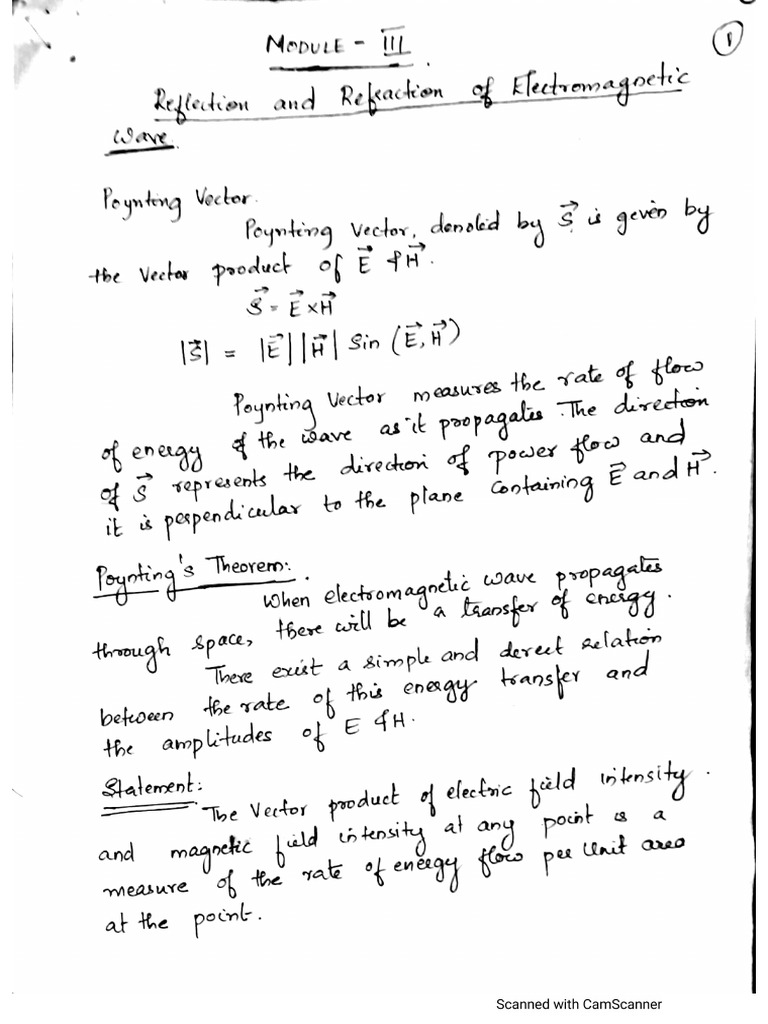 MODULE - III
1
Reflection and Refraction of Electromagnetic
Wave.
Poynting Vector.
Poynting Vector, denoted by S⃗ is given by
the Vector product of E⃗ & H⃗.
S⃗ = E⃗ × H⃗
|S⃗| = |E⃗||H⃗| Sin (E⃗, H⃗)
Poynting Vector measures the rate of flow
of energy of the wave as it propagates. The direction
of S⃗ represents the direction of power flow and
it is perpendicular to the plane containing E⃗ and H⃗.
Poynting's Theorem:
When electromagnetic wave propagates
through space, there will be a transfer of energy.
There exist a simple and derect relation
between the rate of this energy transfer and
the amplitudes of E & H.
Statement:
The Vector product of electric field intensity
and magnetic field intensity at any point is a
measure of the rate of energy flow per Unit area
at the point.
Scanned with CamScanner